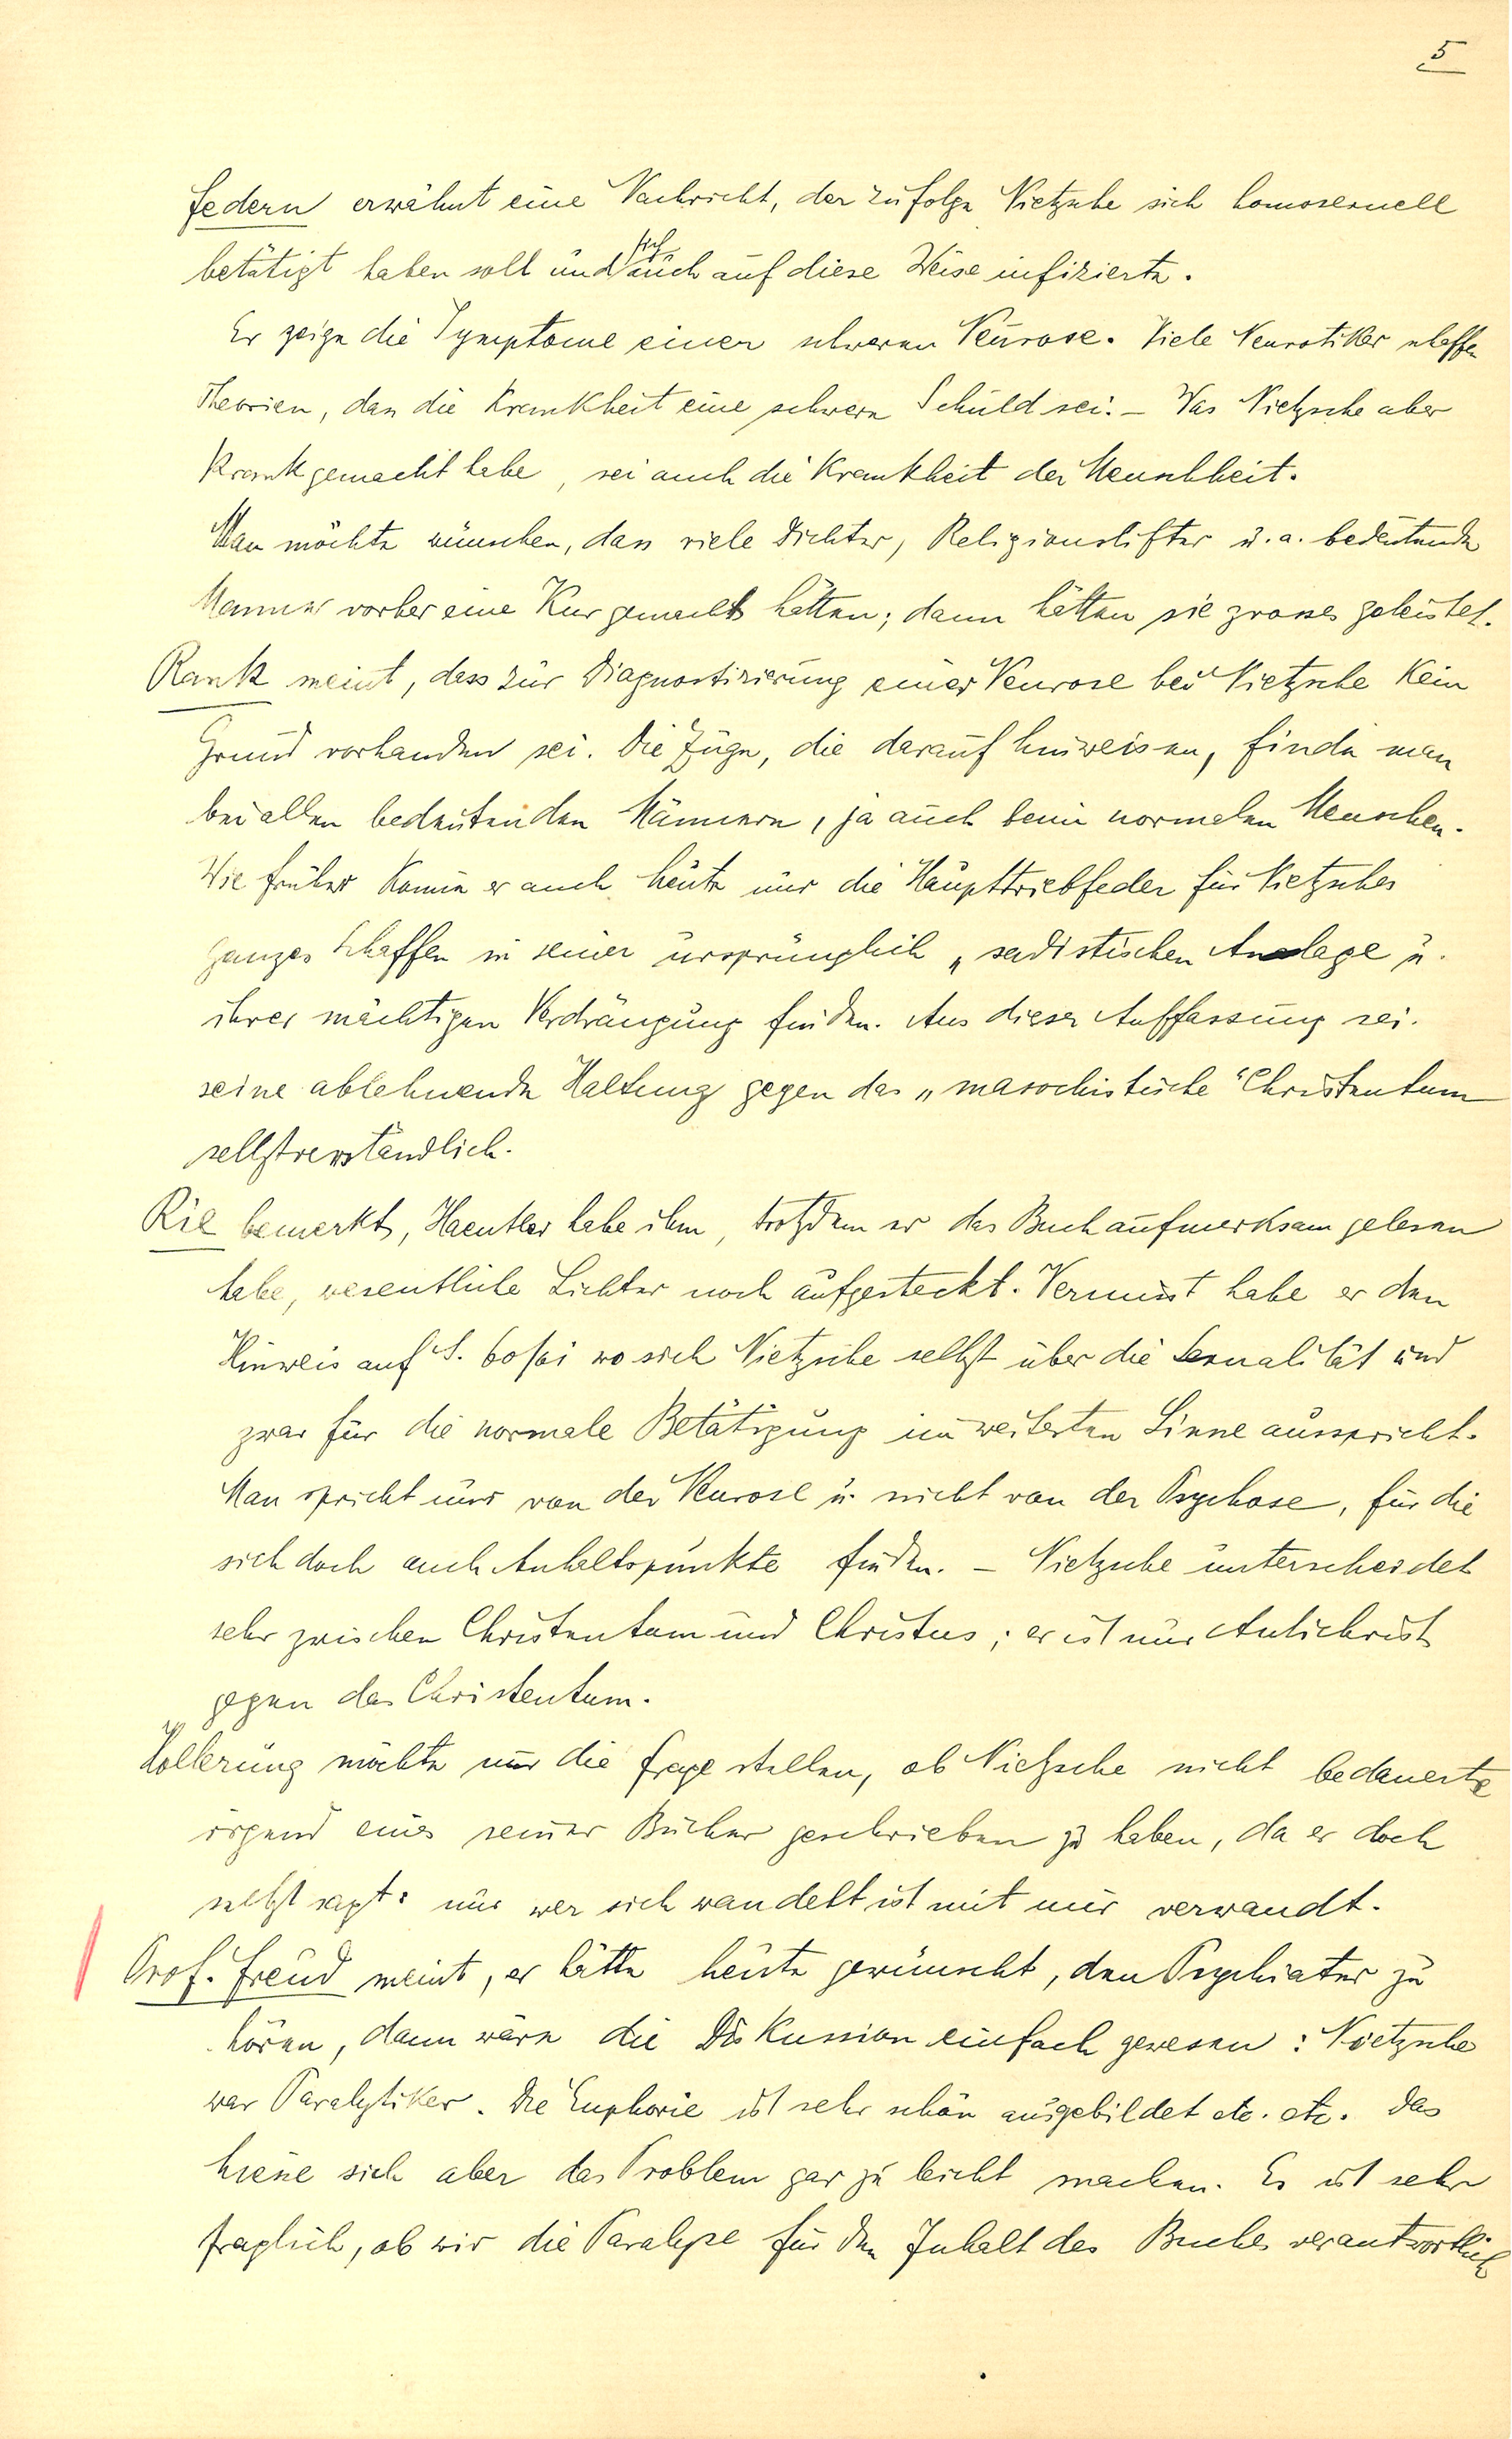 5
Federn erwähnt eine Nachricht, der zufolge Nietzsche sich homosexuell
betätigt haben soll und sich auch auf diese Weise infizierte.
Er zeige die Symptome einer schweren Neurose. Viele Neurotiker schaffen
Theorien, dass die Krankheit eine schwere Schuld sei. – Was Nietzsche aber
krank gemacht habe, sei auch die Krankheit der Menschheit.
Man möchte wünschen, dass viele Dichter, Religionsstifter u. a. bedeutende
Männer vorher eine Kur gemacht hätten; dann hätten sie grosses geleistet.
Rank meint, dass zur Diagnostizierung einer Neurose bei Nietzsche kein
Grund vorhanden sei. Die Züge, die darauf hinweisen, finde man
bei allen bedeutenden Männern, ja auch beim normalen Menschen.
Wie früher könne er auch heute nur die Haupttriebfeder für Nietzsches
ganzes Schaffen in seiner ursprünglich „sadistischen Anlage u.
ihrer mächtigen Verdrängung finden. Aus dieser Auffassung sei
seine ablehnende Haltung gegen das „masochistische“ Christentum
selbstverständlich.
Rie bemerkt, Haeutler habe ihm, trotzdem er das Buch aufmerksam gelesen
habe, wesentliche Lichter noch aufgesteckt. Vermisst habe er den
Hinweis auf S. 60/61 wo sich Nietzsche selbst über die Sexualität und
zwar für die normale Betätigung im weitesten Sinne ausspricht.
Man spricht nur von der Neurose u. nicht von der Psychose, für die
sich doch auch Anhaltspunkte finden. – Nietzsche unterscheidet
sehr zwischen Christentum und Christus; er ist nur Antichrist
gegen das Christentum.
Hollerung möchte nur die Frage stellen, ob Nietzsche nicht bedauerte
irgend eines seiner Bücher geschrieben zu haben, da er doch
selbst sagt: nur wer sich wandelt ist mit mir verwandt.
Prof. Freud meint, er hätte heute gewünscht, den Psychiater zu
hören, dann wäre die Diskussion einfach gewesen: Nietzsche
war Paralytiker. Die Euphorie ist sehr schön ausgebildet etc. etc. Das
hiesse sich aber das Problem gar zu leicht machen. Es ist sehr
fraglich, ob wir die Paralyse für den Inhalt des Buches verantwortlich